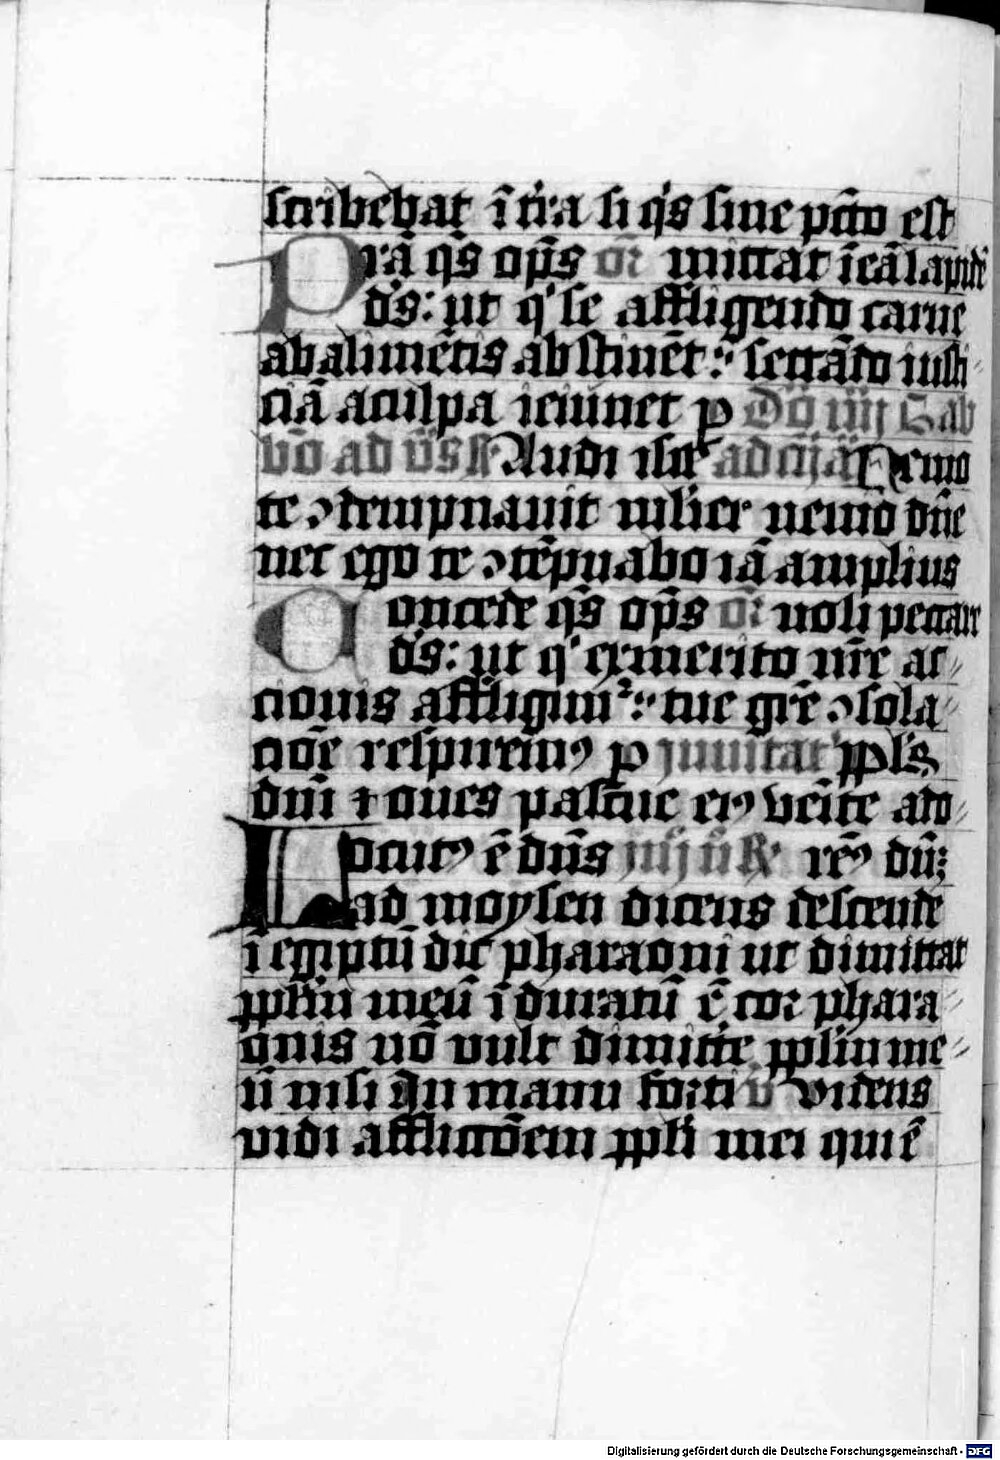 scribebat ī t'ra si q's sine pctō est
Prā qs̄ op̄s or̄ mittat ī eā lapidē
ds̄: ut q' se affligendo carne
ab alimētis abstinēt: sectādo iusti
ciā a culpa ieiunet p Dō iiij Sab
bō ad vs̄ Audi isrl' ad Nemo
te ꝯdempnauit mlier nemo dn̄e
nec ego te ꝯtēpnabo iā amplius
Concede qs̄ op̄s or̄ noli peccare
ds̄: ut q' ex merito nr̄e ac
cionis affligimꝰ: tue gr̄e ꝯsola
ciōe respiremꝰ p inuitat' ppl's
dn̄i ⁊ oues pascue eiꝰ veīte ado
Locutꝰ ē dn̄s R' remꝰ dn̄:
ad moysen dicens descende
ī egiptū dic pharaoni ut dimittat
pplm̄ meū īduratū ē cor phara
onis nō vult dimitt'e pplm̄ me
ū nisi In manu forti v̄ videns
vidi afflictōem ppli mei qui ē
Digitalisierung gefördert durch die Deutsche Forschungsgemeinschaft - DFG